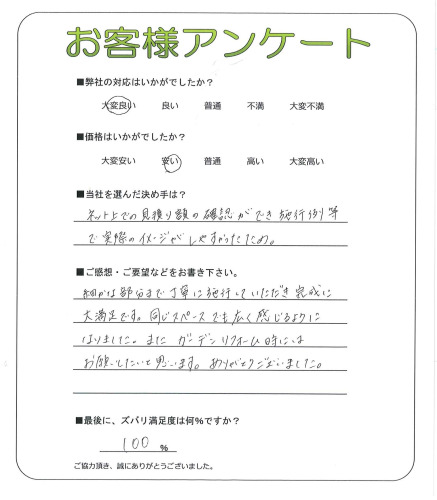 お客様アンケート
■弊社の対応はいかがでしたか？
大変良い 良い 普通 不満 大変不満
■価格はいかがでしたか？
大変安い 安い 普通 高い 大変高い
■当社を選んだ決め手は？
ネット上での見積り額の確認ができ施行例等
で実際のイメージがしやすかったため。
■ご感想・ご要望などをお書き下さい。
細かな部分まで丁寧に施行していただき完成に
大満足です。同じスペースでも広く感じるように
なりました。また ガーデンリフォーム時には
お願いしたいと思います。ありがとうございました。
■最後に、ズバリ満足度は何%ですか？
100 %
ご協力頂き、誠にありがとうございました。